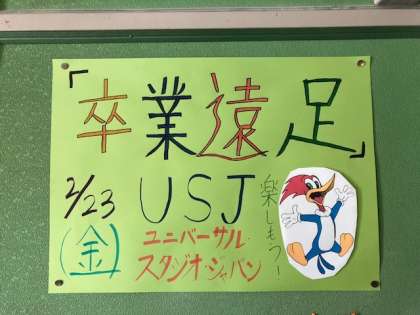 「卒業遠足」
2/23
(金)
USJ
ユニバーサル
スタジオ・ジャパン
楽しもう!